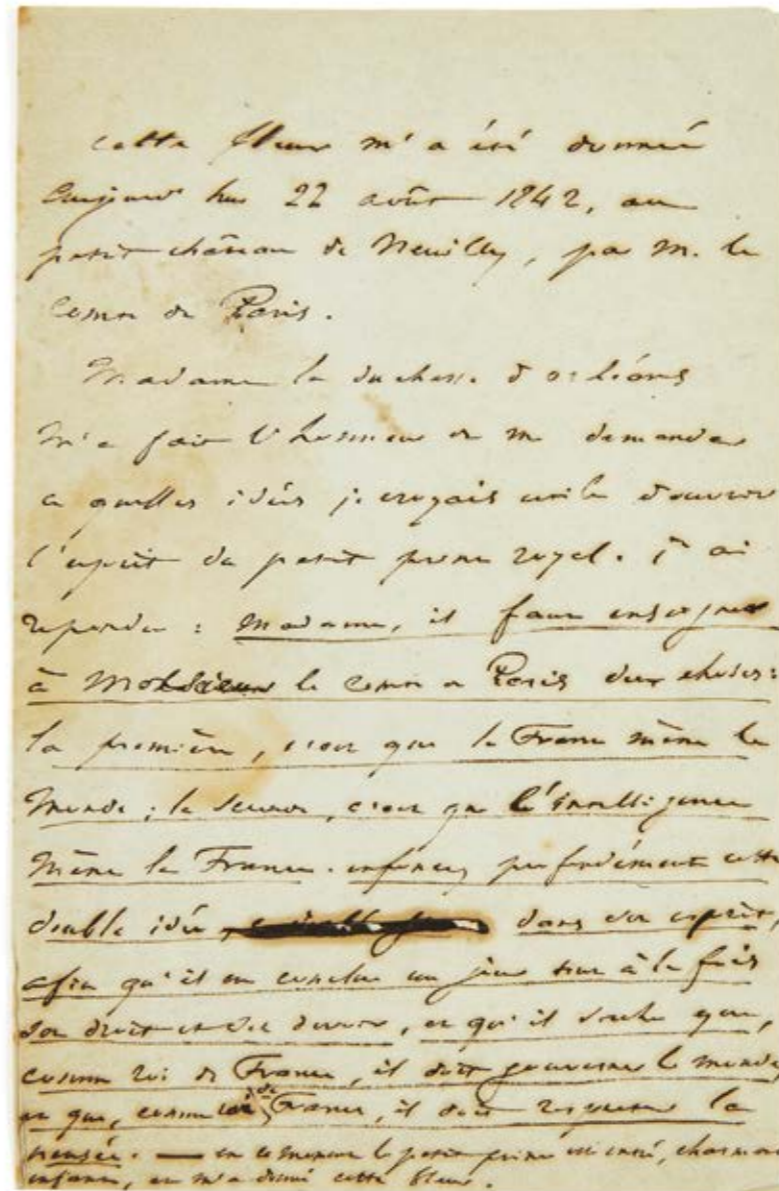 Cette fleur m'a été donnée
aujourd'hui 22 août 1842, au
petit château de Neuilly, par M. le
Comte de Paris.
Madame la duchesse d'orléans
m'a fait l'honneur de me demander
à quelles idées je croyais utile d'ouvrir
l'esprit du petit prince royal. j'ai
répondu : Madame, il faut enseigner
à Monsieur le Comte de Paris deux choses :
la première, c'est que la France mène le
monde ; la seconde, c'est que l'intelligence
mène la France. enfoncez profondément cette
double idée dans son esprit,
afin qu'il en conclue un jour tout à la fois
son droit et son devoir, et qu'il sache que,
comme roi de France, il doit gouverner le monde,
et que, comme roi de France, il doit respecter la
pensée. — en ce moment le petit prince est entré, charmant
enfant, et m'a donné cette fleur.